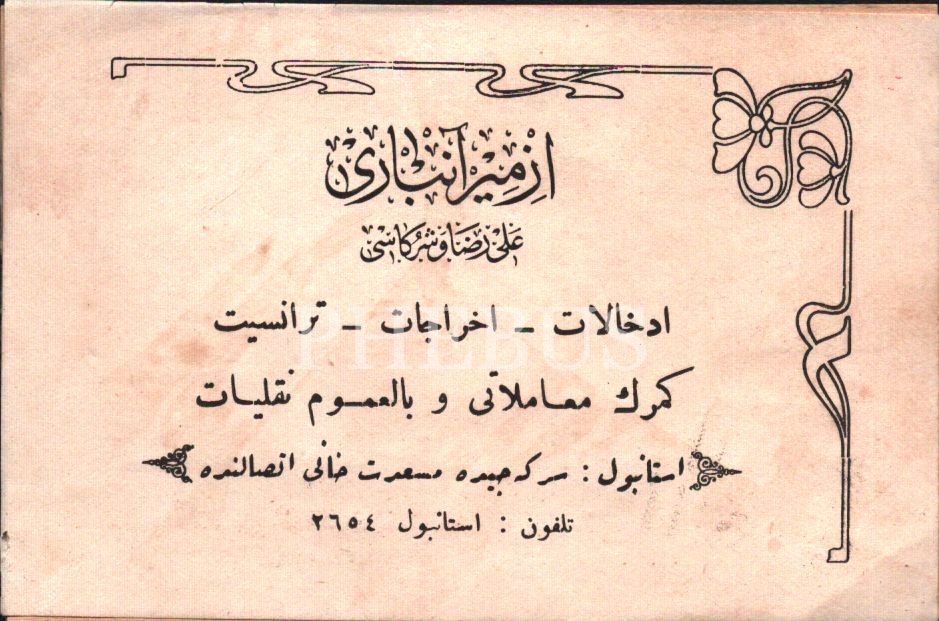 ازمیر آنباری
علی رضا و شرکاسی
ادخالات - اخراجات - ترانسیت
کمرك معاملاتی و بالعموم نقلیات
استانبول : سرکه جیده مسعدت خانی اتصالنده
تلفون : استانبول ٢٦٥٤
PHEBUS